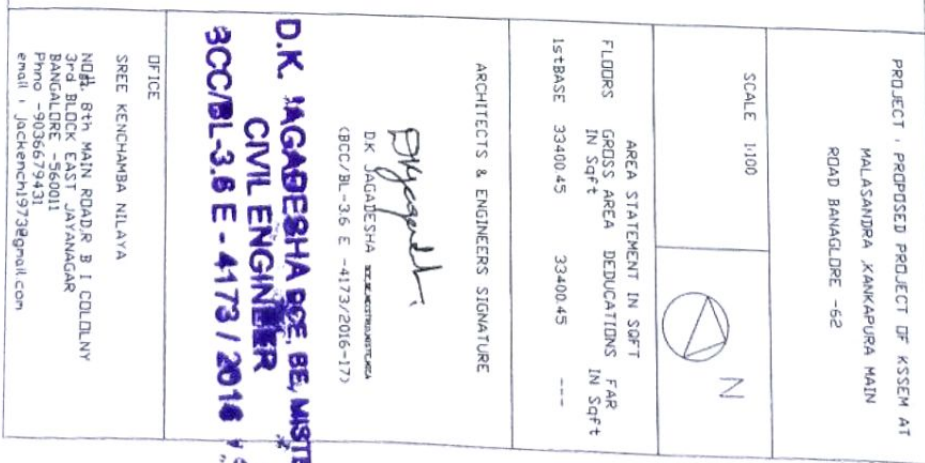 PROJECT : PROPOSED PROJECT OF KSSEM AT
MALASANDRA ,KANKAPURA MAIN
ROAD BANAGLORE -62
SCALE 1:100
N
AREA STATEMENT IN SQFT
FLOORS GROSS AREA DEDUCATIONS FAR
IN Sqft IN Sqft
1stBASE 33400.45 33400.45 ---
ARCHITECTS & ENGINEERS SIGNATURE
DK JAGADESHA
(BCC/BL-3.6 E -4173/2016-17)
D.K. JAGADESHA BE, MISTE
CIVIL ENGINEER
BCC/BL-3.6 E - 4173 / 2016
OFICE
SREE KENCHAMBA NILAYA
8th MAIN ROAD,R B I COLOLNY
3rd BLOCK EAST JAYANAGAR
BANGALORE -560011
Phno -9036679431
email : jackench1973@gmail.com